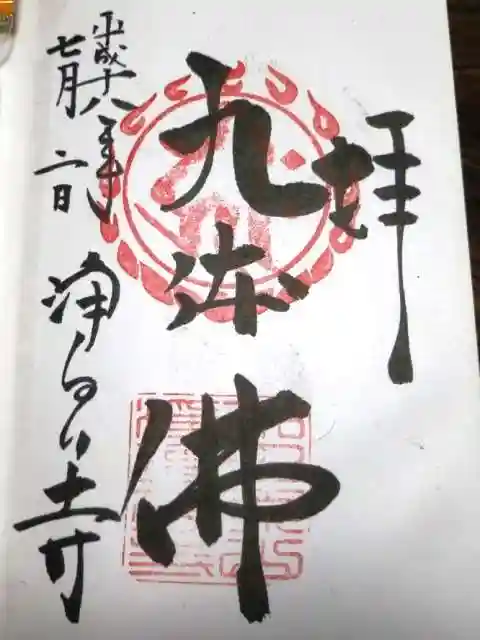 拝
九体佛
平成十八年
七月二日
浄るり寺